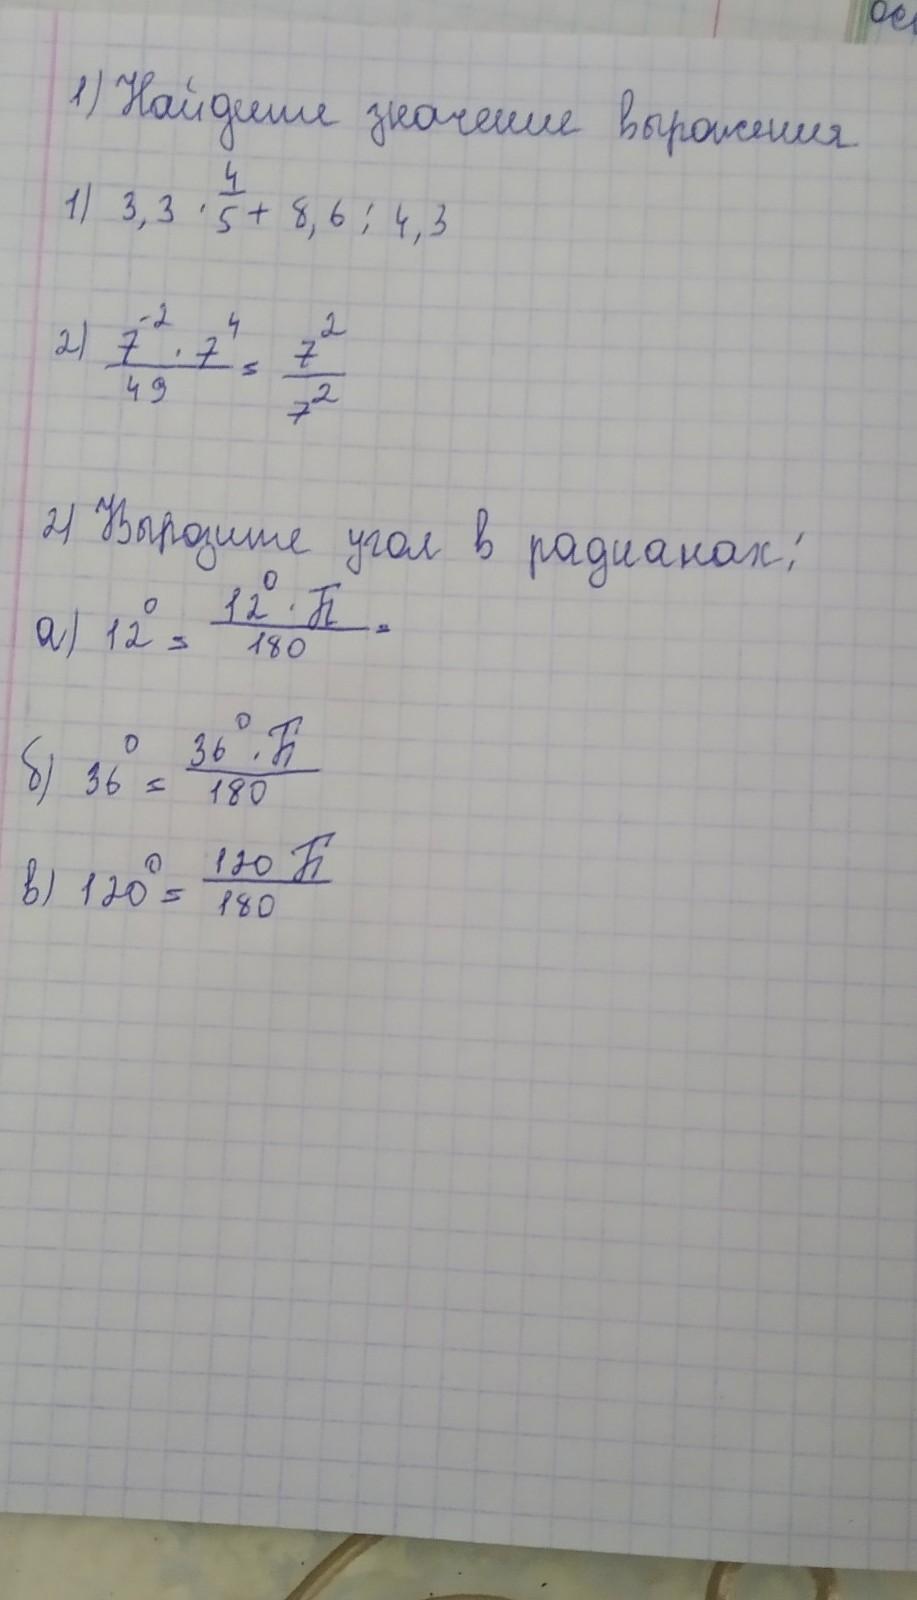 1) Найдите значение выражения
1) 3,3 · 4/5 + 8,6 : 4,3
2) 7^-2 · 7^4 / 49 = 7^2 / 7^2
2) Выразите угол в радианах:
а) 12° = 12° · П / 180 =
б) 36° = 36° · П / 180
в) 120° = 120 П / 180